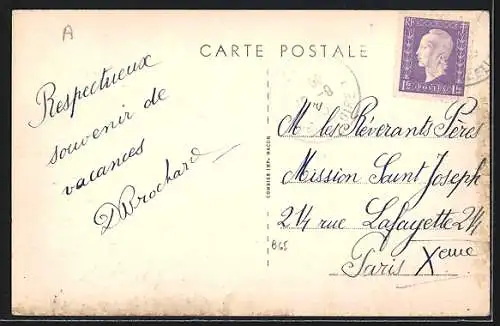 A
CARTE POSTALE
RF
1F50
POSTES
1F50
Respectueux
souvenir de
vacances
D Brochard
M les Réverants Pères
Mission Saint Joseph
214 rue Lafayette 214
Paris Xeme
COMBIER IMP. MACON
B65